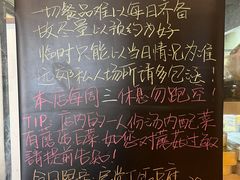 一切餐品准以每日齐备
故尽量以预约为好
临时只能以当日情况为准
还如私人场所请多包涵！
本店每周三休息勿跑空！
TIP：店内的一人份汤内配菜
有菌菇白菜 如您对菌菇过敏
請提前告知！